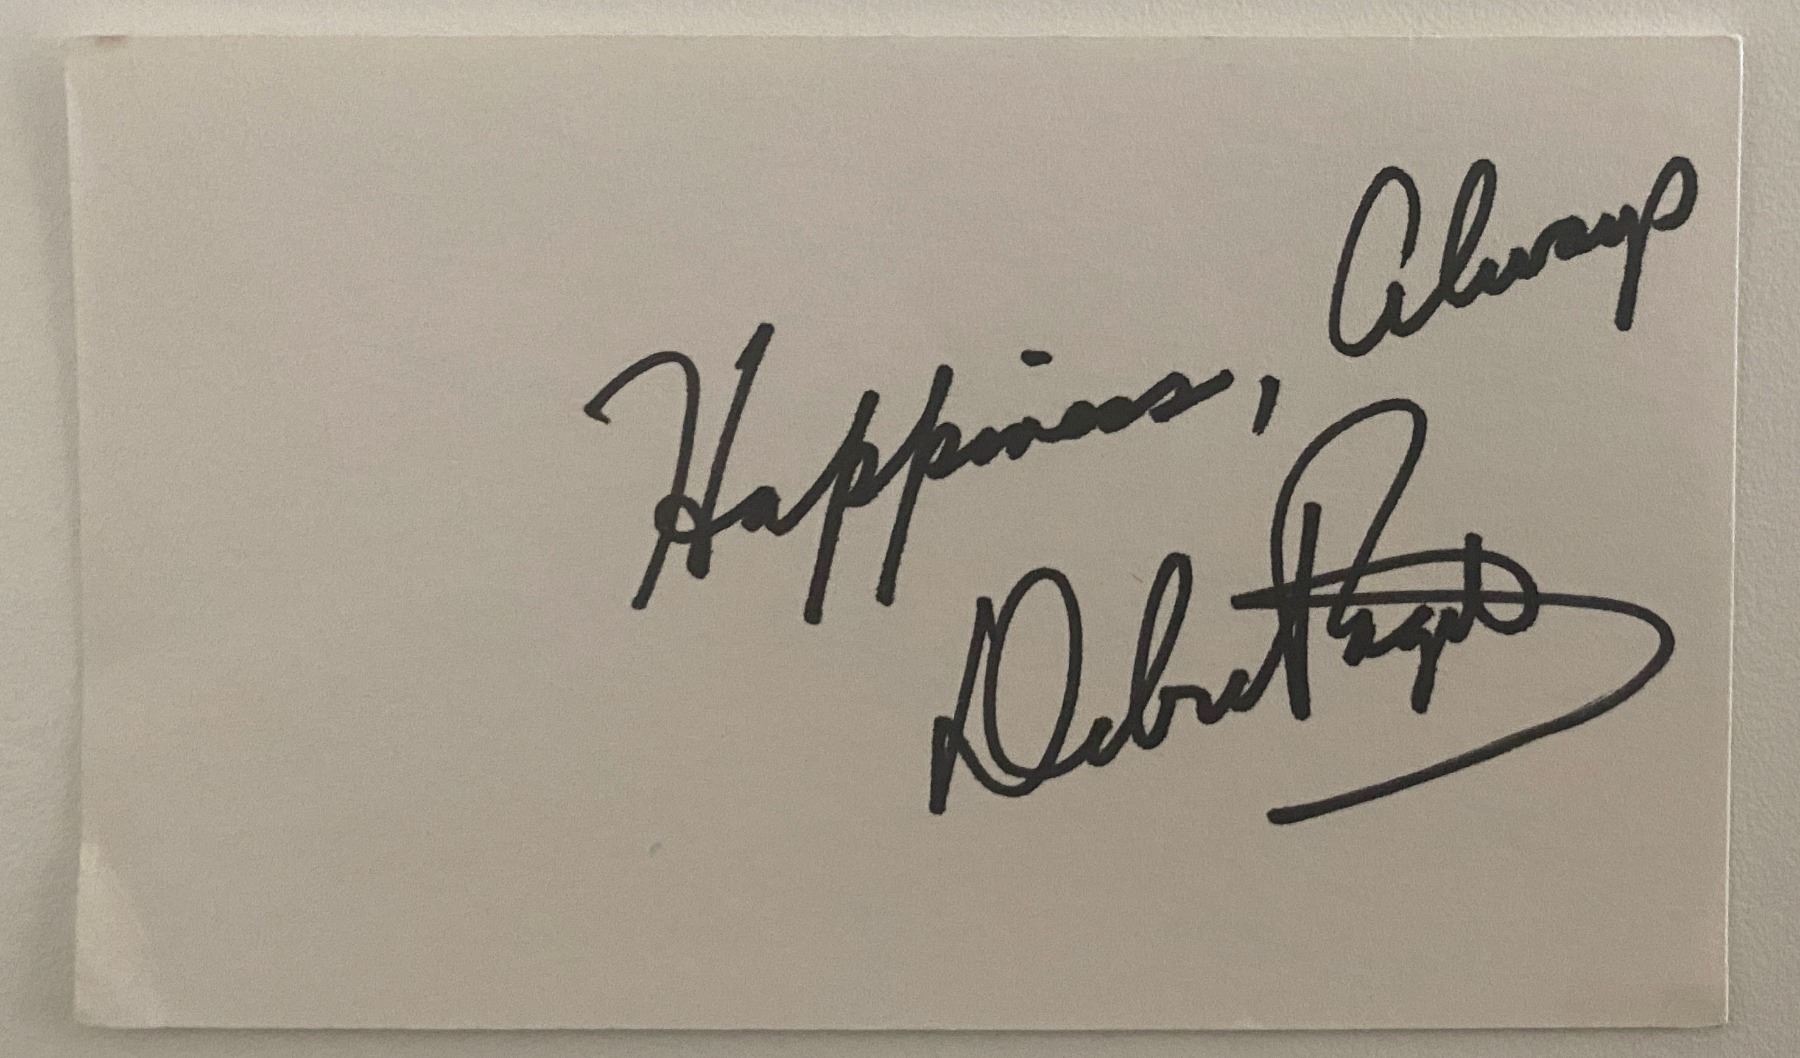 Happiness, Always
Debra Paget